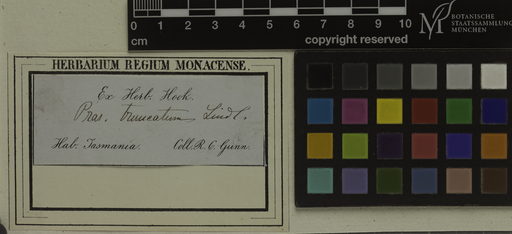 0 1 2 3 4 5 6 7 8 9 10
cm
copyright reserved
BOTANISCHE
STAATSSAMMLUNG
MÜNCHEN
HERBARIUM REGIUM MONACENSE.
Ex Herb. Hook.
Pras. truncatum Lindl.
Hab. Tasmania. Coll. R. C. Gunn.